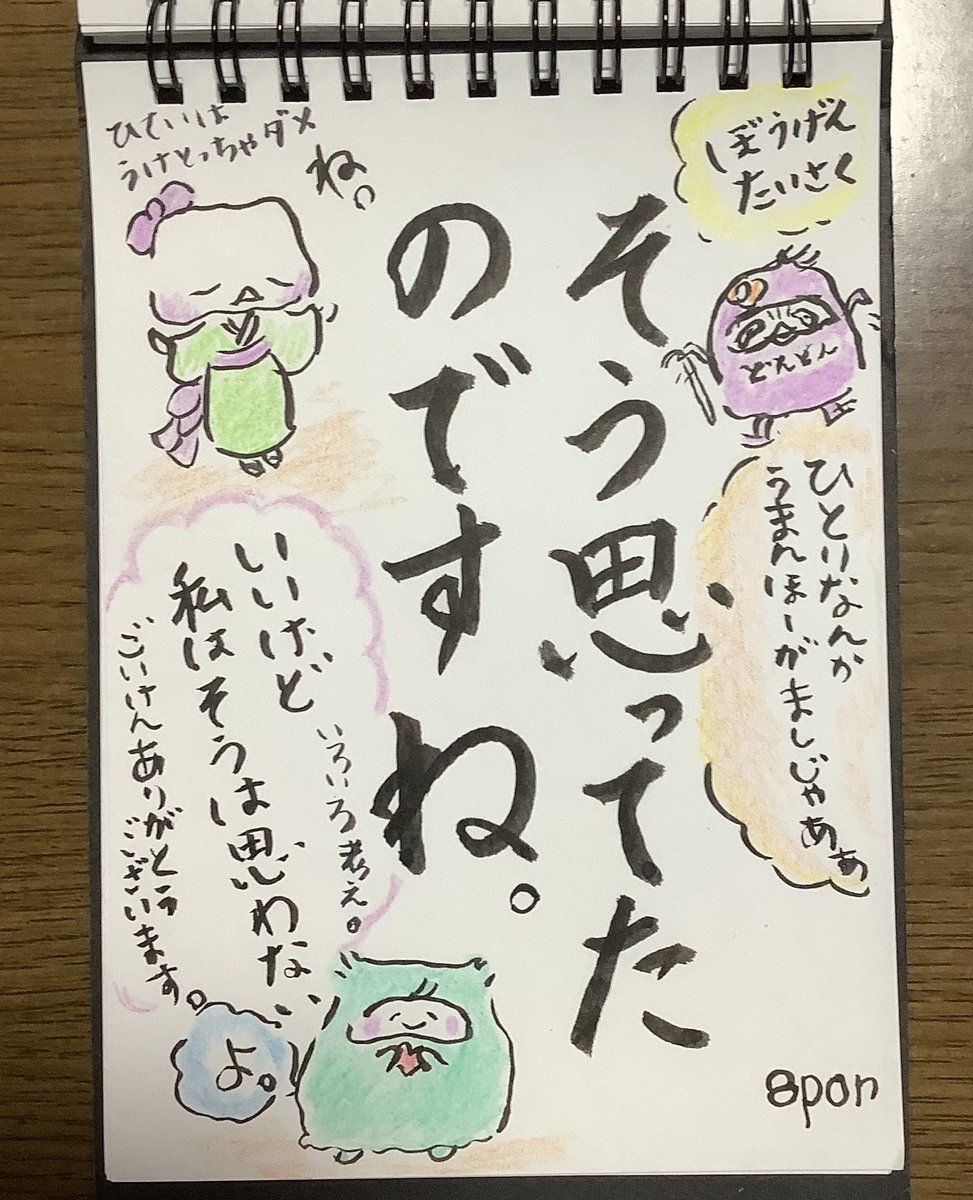 ぼうげん
たいさく
そう思ってた
のですね。
どんどん
ひとりなんか
うまんほーがましじゃあぁ
ひていは
うけとっちゃダメ
ね。
いいけど
いろいろ考え。
私はそうは思わない
ごいけんありがとう
ございます。
よ。
8pon